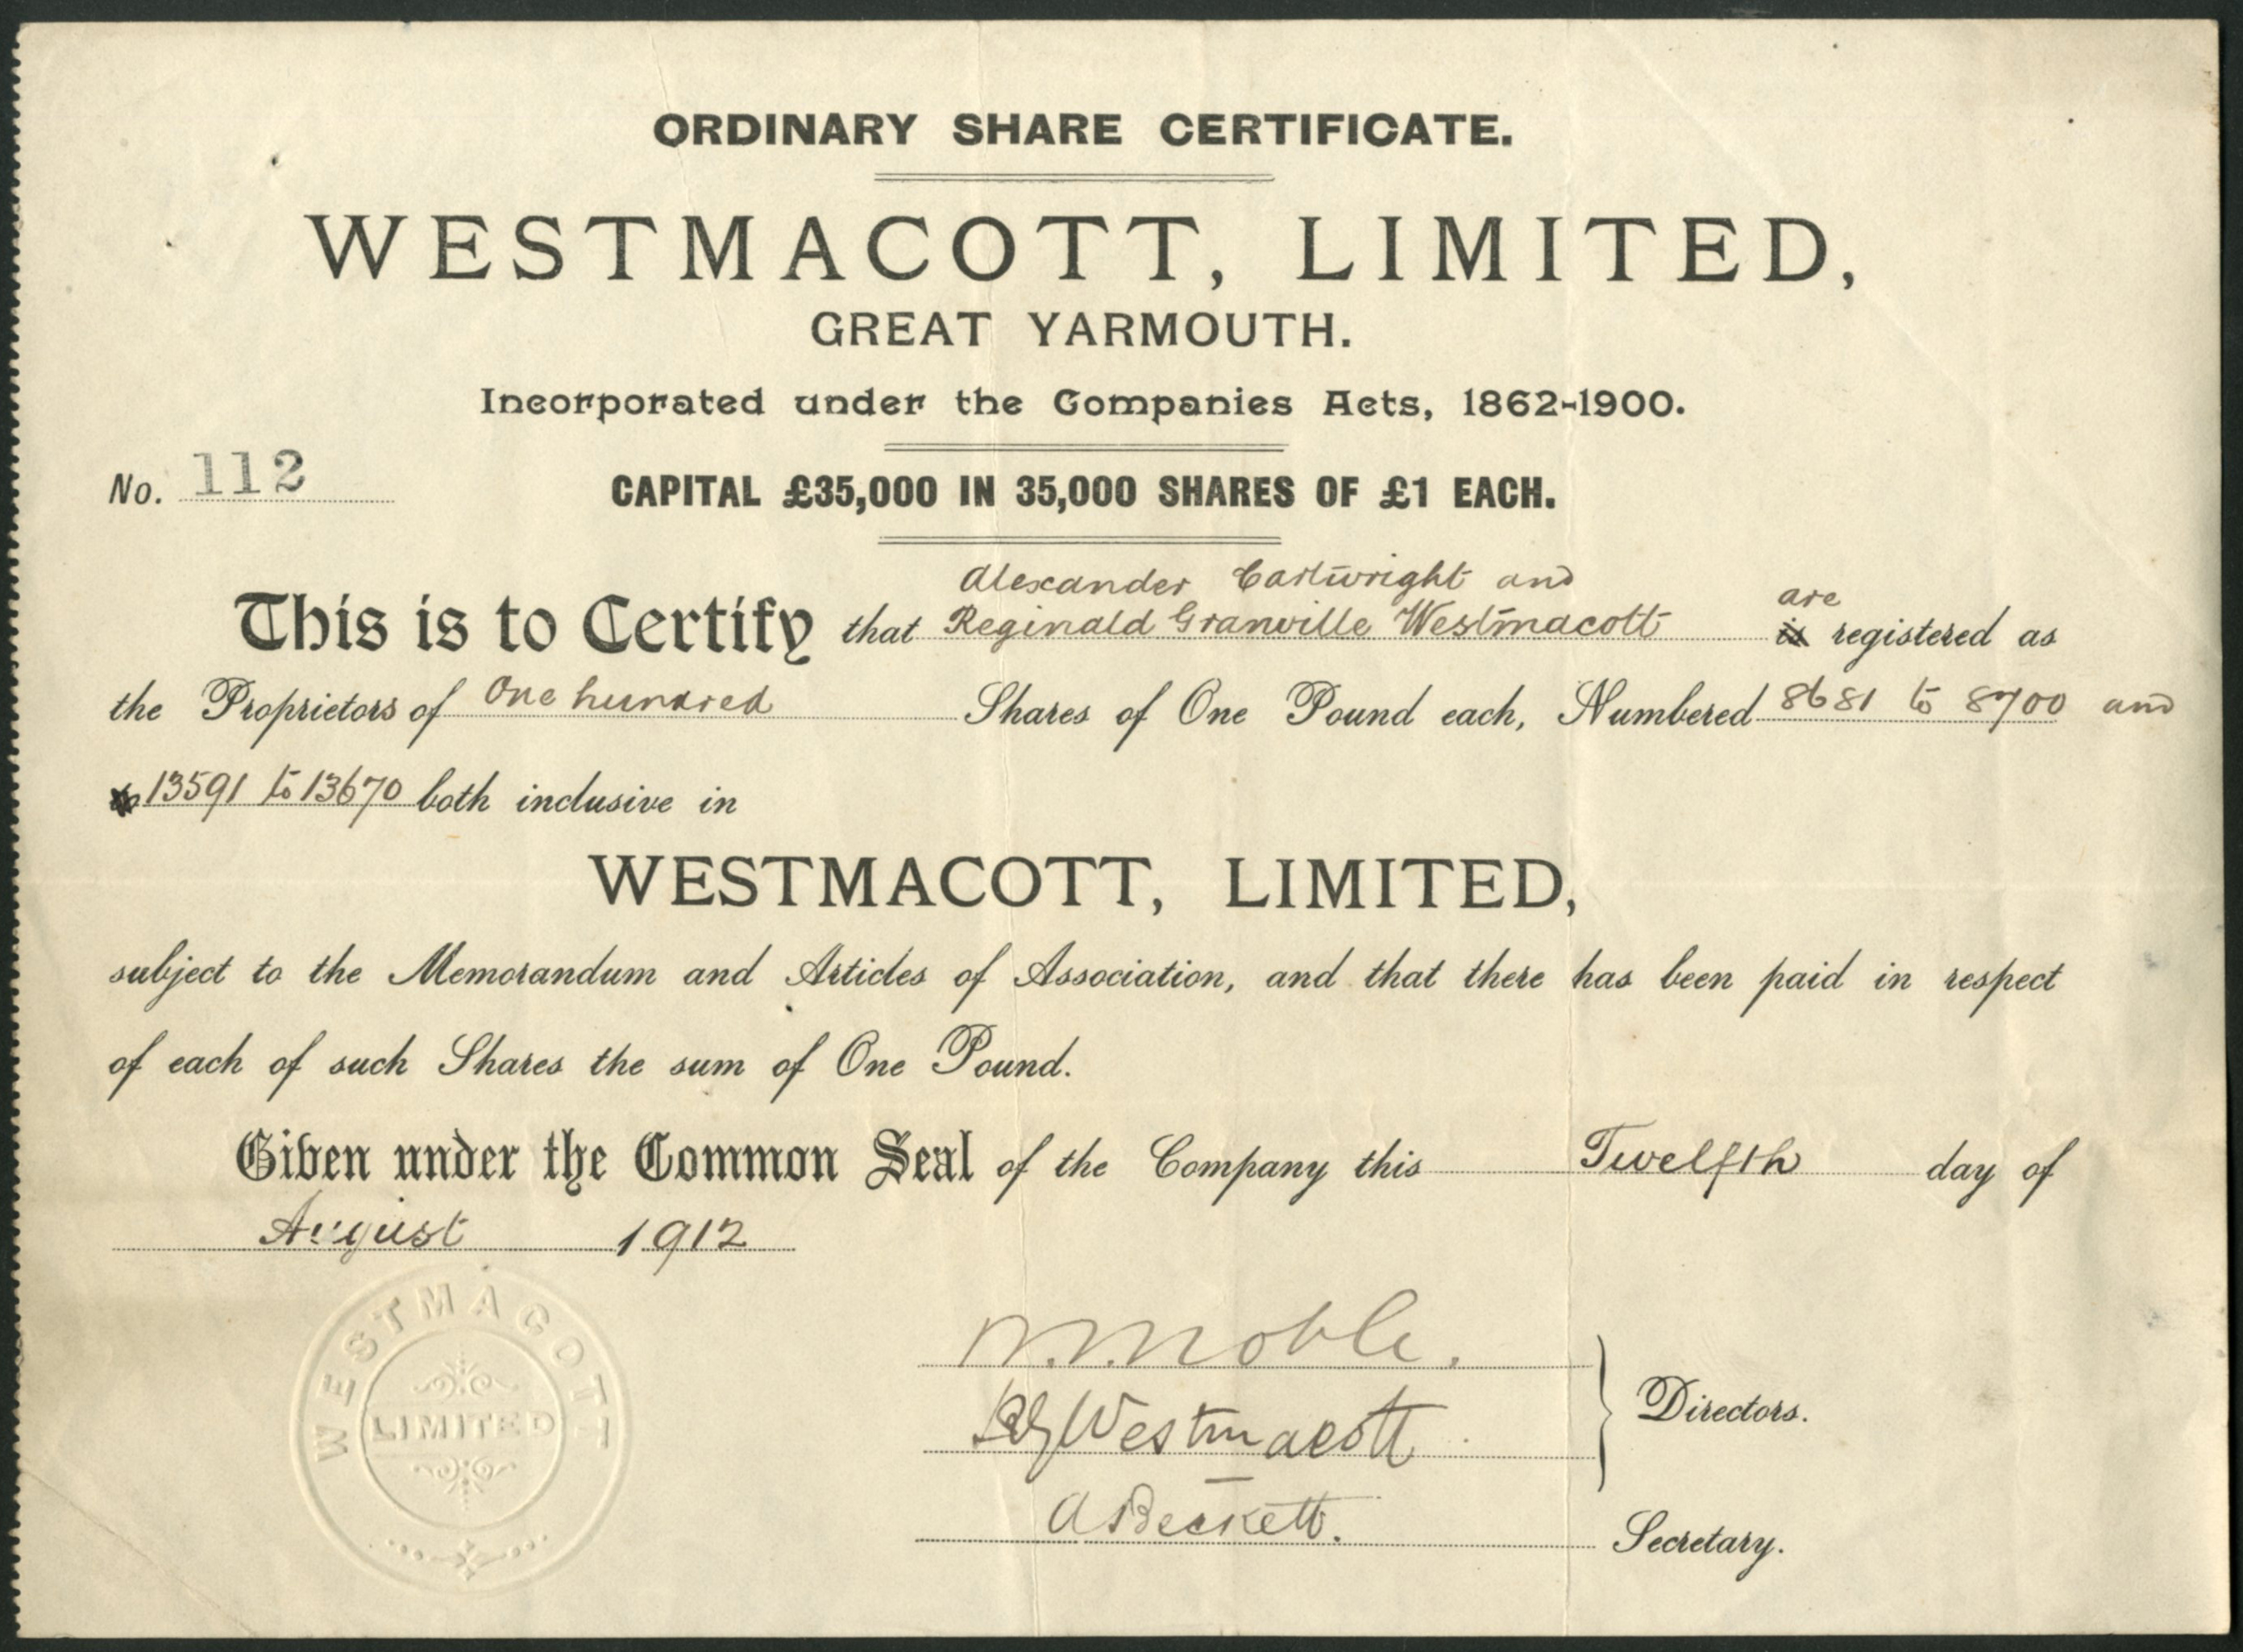 ORDINARY SHARE CERTIFICATE.
WESTMACOTT, LIMITED,
GREAT YARMOUTH.
Incorporated under the Companies Acts, 1862-1900.
No. 112
CAPITAL £35,000 IN 35,000 SHARES OF £1 EACH.
Alexander Cartwright and
are
This is to Certify that Reginald Granville Westmacott is registered as
the Proprietors of One hundred Shares of One Pound each, Numbered 8681 to 8700 and
to 13591 to 13670 both inclusive in
WESTMACOTT, LIMITED,
subject to the Memorandum and Articles of Association, and that there has been paid in respect
of each of such Shares the sum of One Pound.
Given under the Common Seal of the Company this Twelfth day of
August 1912
WESTMACOTT
LIMITED
Noble.
Westmacott
Directors.
A Beckett.
Secretary.